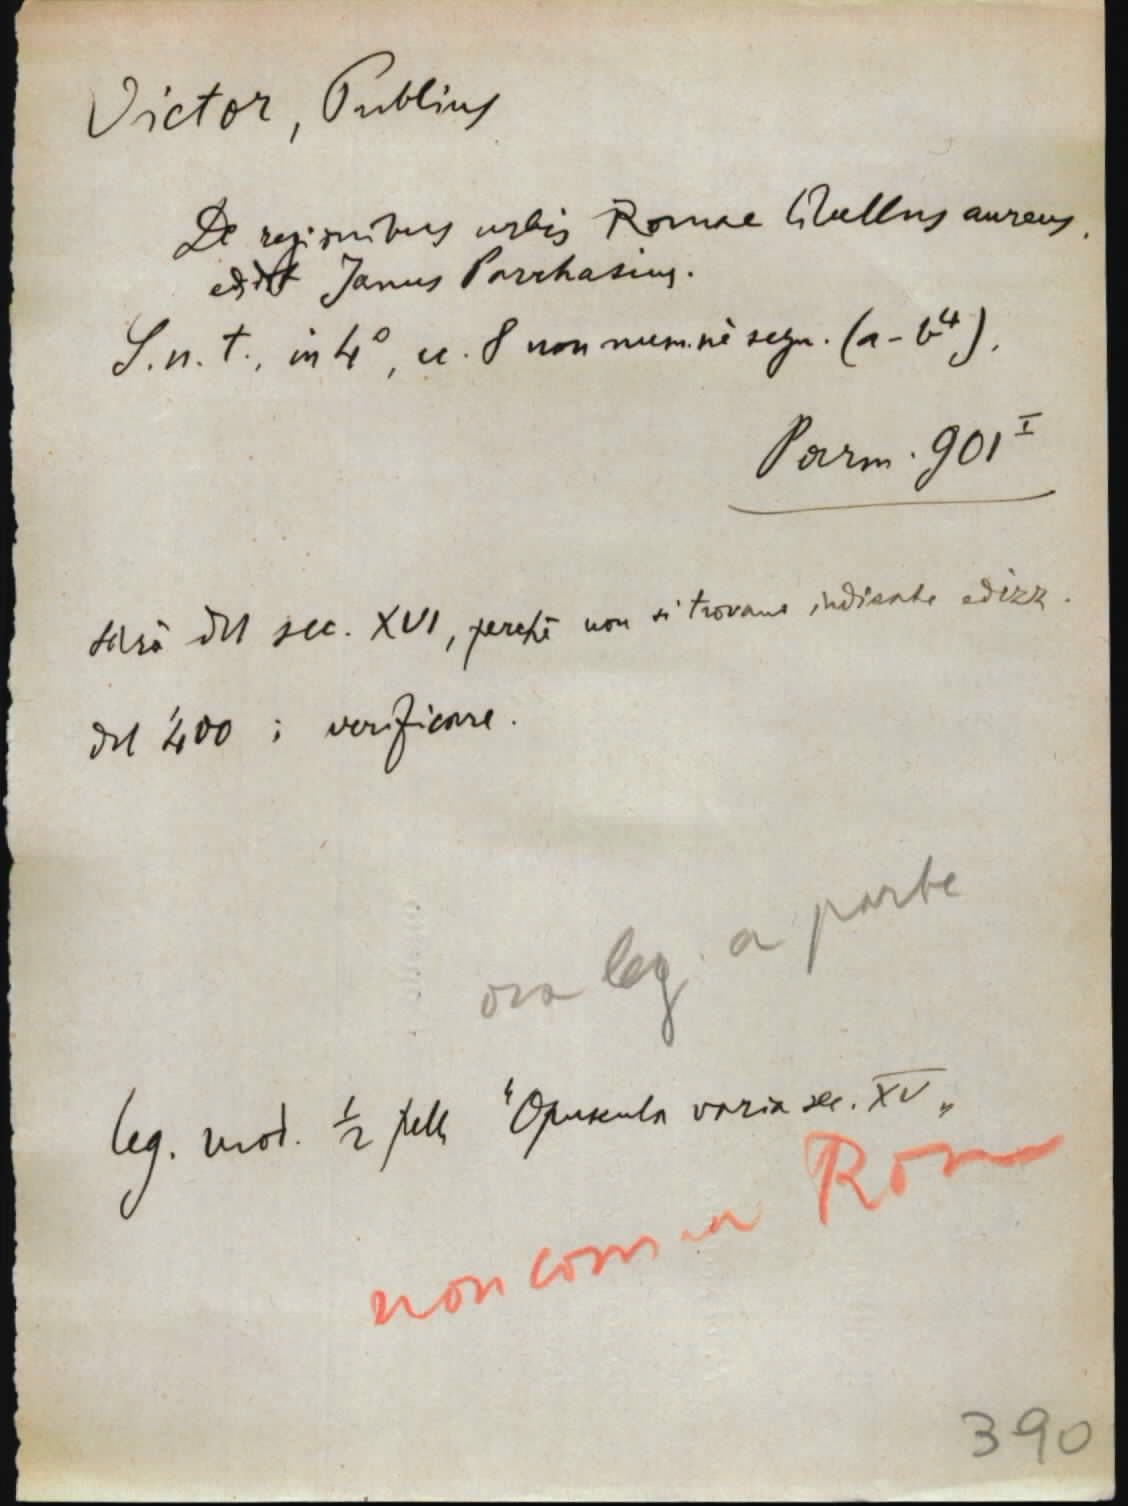 Victor, Publius
De regionibus urbis Romae libellus aureus,
edidit Janus Parrhasius.
S. n. t., in 4°, cc. 8 non num. nè segn. (a-b⁴).
Parm. 901 I
sarà del sec. XVI, perchè non si trovano indicate edizz.
del '400 ; verificare.
ora leg. a parte
leg. mod. ½ pelle "Opuscula varia sec. XV"
non com a Rom
390